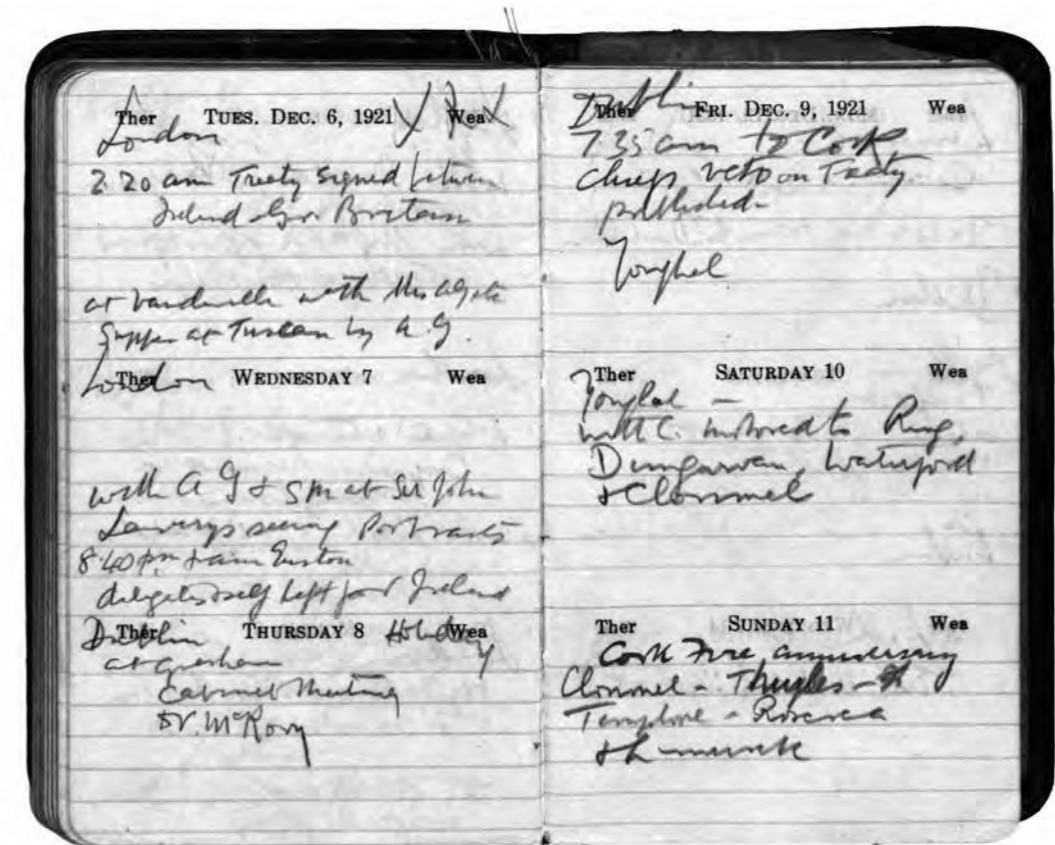 Ther TUES. DEC. 6, 1921 Wea
London
2.20 am Treaty signed between
Ireland & Gr. Britain
at with
Supper at by A G.
Ther WEDNESDAY 7 Wea
London
with A G & SM at Sir John
Laverys seeing Portraits
8.40 pm train Euston
delegates & self left for Ireland
Ther THURSDAY 8 Wea
Dublin Holiday
at Gresham
Cabinet Meeting
Dr. McRory
Ther FRI. DEC. 9, 1921 Wea
Dublin
7 35 am to Cork
Chiefs veto on Treaty
published
Youghal
Ther SATURDAY 10 Wea
Youghal –
with C. motored to Ring,
Dungarvan, Waterford
& Clonmel
Ther SUNDAY 11 Wea
Cork Fire anniversary
Clonmel – Thurles –
Templemore – Roscrea
& Limerick